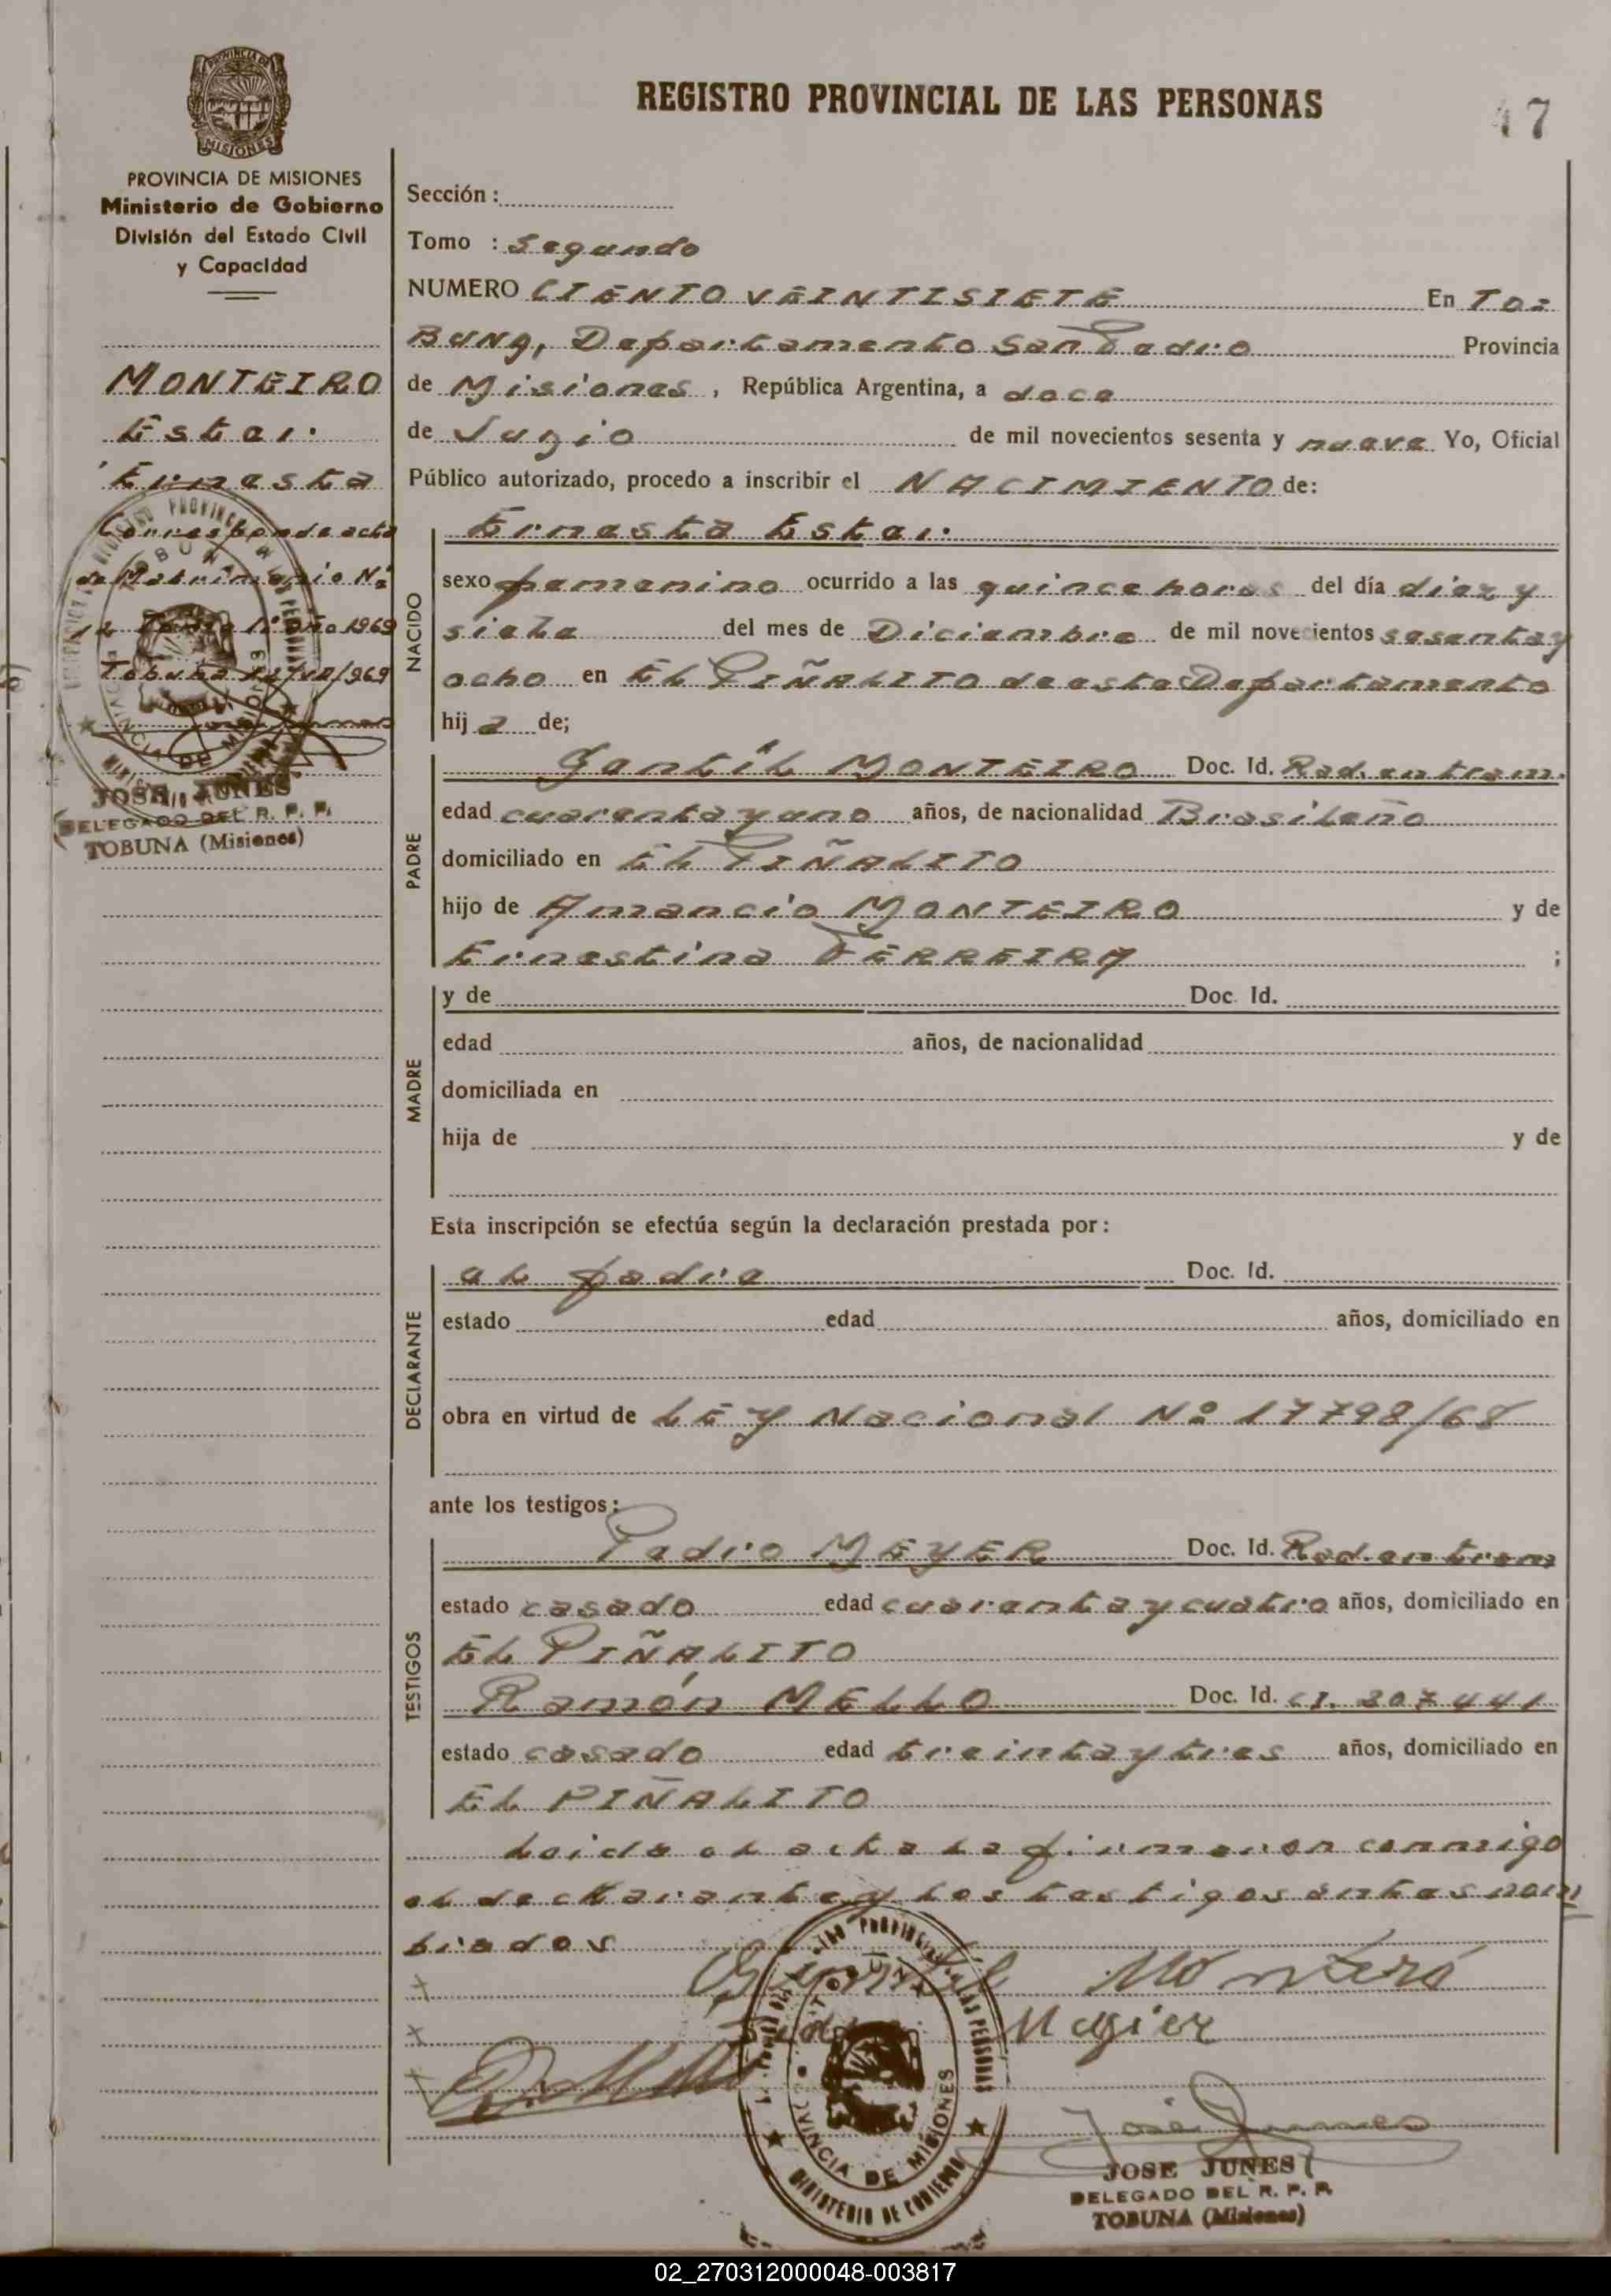 REGISTRO PROVINCIAL DE LAS PERSONAS
47
PROVINCIA DE MISIONES
MISIONES
PROVINCIA DE MISIONES
Ministerio de Gobierno
División del Estado Civil
y Capacidad
MONTEIRO
Ester
Ernesta
Corresponde acta
de Matrimonio Nº
12 Tomo 1º Año 1969
Tobuna /VII/969
JOSE JUNES
DELEGADO DEL R. P. P.
TOBUNA (Misiones)
Sección :
Tomo : Segundo
NUMERO CIENTO VEINTISIETE En TO=
BUNA, Departamento San Pedro Provincia
de Misiones, República Argentina, a doce
de Junio de mil novecientos sesenta y nueve Yo, Oficial
Público autorizado, procedo a inscribir el NACIMIENTO de:
Ernesta Ester
NACIDO
sexo femenino ocurrido a las quince horas del día diez y
siete del mes de Diciembre de mil novecientos sesenta y
ocho en EL PIÑALITO de este Departamento
hija de;
PADRE
Gentíl MONTEIRO Doc. Id. Rad. en tram.
edad cuarenta y uno años, de nacionalidad Brasileño
domiciliado en EL PIÑALITO
hijo de Amancio MONTEIRO y de
Ernestina FERREIRA ;
MADRE
y de Doc. Id.
edad años, de nacionalidad
domiciliada en
hija de y de
Esta inscripción se efectúa según la declaración prestada por :
DECLARANTE
el padre Doc. Id.
estado edad años, domiciliado en
obra en virtud de LEY Nacional Nº 17798/68
ante los testigos :
TESTIGOS
Pedro MEYER Doc. Id. Rad. en tram
estado casado edad cuarenta y cuatro años, domiciliado en
EL PIÑALITO
Ramón MELLO Doc. Id. CI. 207441
estado casado edad treinta y tres años, domiciliado en
EL PIÑALITO
Leida el acta la firmaron conmigo
el declarante y los testigos antes nom
brados
Montero
Megier
REGISTRO PROVINCIAL DE LAS PERSONAS
TOBUNA
PROVINCIA DE MISIONES
MINISTERIO DE GOBIERNO
José Junes
JOSE JUNES
DELEGADO DEL R. P. P.
TOBUNA (Misiones)
02_270312000048-003817